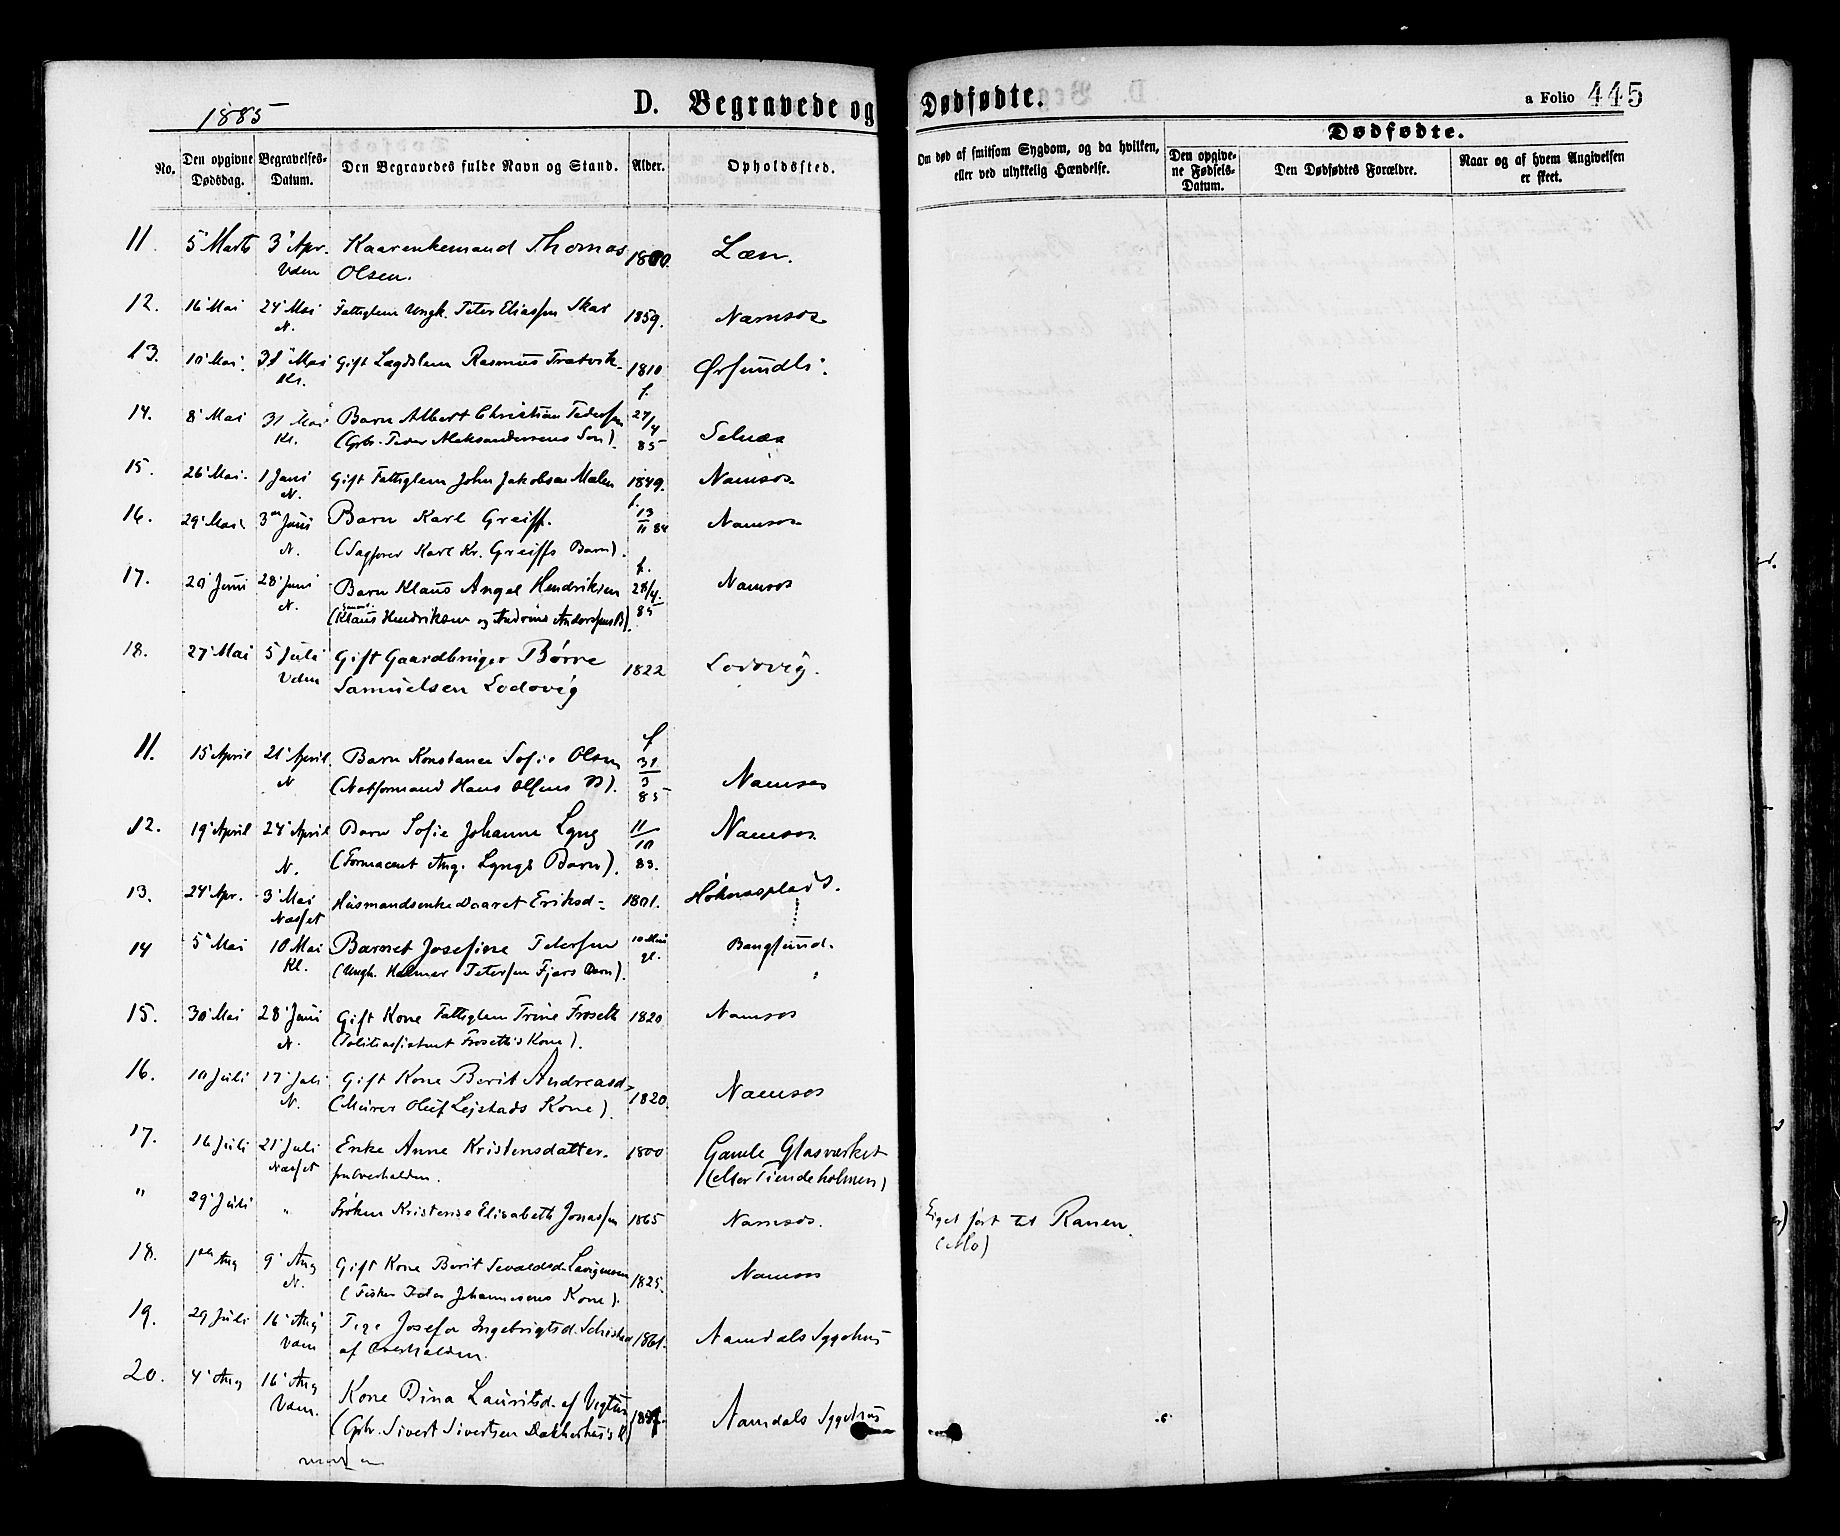 1885
D. Begravede og Dødfødte.
a Folio 445
No.
Den opgivne Dødsdag.
Begravelses-Datum.
Den Begravedes fulde Navn og Stand.
Alder.
Opholdssted.
Om død af smitsom Sygdom, og da hvilken, eller ved ulykkelig Hændelse.
Dødfødte.
Den opgivne Fødsels-Datum.
Den Dødfødtes Forældre.
Naar og af hvem Angivelsen er skeet.
11. 5' Marts 3' Apr. Kaarenkemand Thomas 1800. Læn.
Vdm Olsen.
12. 16' Mai 24' Mai Fattiglem Ungk. Peter Eliassen 1859. Namsos
N.
13. 10' Mai 31' Mai Gift Lægdslem Rasmus 1810
Kl.
14. 8' Mai 31 Mai Barn Albert Christian Pedersen f. 27/4 85 Selnæs
Kl. (Gbr. Peder Aleksandersens Søn).
15. 26' Mai. 1 Juni Gift Fattiglem John Jakobsen Malen 1849. Namsos
N.
16. 29' Mai 3 Juni Barn Karl Greiff. f. 13/11 84 Namsos
N. (Sagfører Karl Kr. Greiffs Barn).
17. 20' Juni 28' Juni Barn Klaus Angel Hendriksen f. 28/4. 85 Namsos
N. (Klaus Hendriksen og Andrine Andersens B).
18. 27' Mai 5' Juli Gift Gaardbruger Børre 1822 Lodovig.
Vdm Samuelsen Lodovig
11. 15' April 21' April. Barn Konstance Sofie Olsen f 31/3 85 Namsos
N (Notformand Hans Olsens B).
12. 19' April 24' April Barn Sofie Johanne Lyng 11/10 83. Namsos.
N. (Formacent Aug. Lyngs Barn).
13. 24' Apr. 3' Mai Husmandsenke Daaret Eriksd- 1801.
Næsset
14 5' Mai 10 Mai Barnet Josefine Petersen 10 gl. Bangsund.
Kl. (Ungk. Halmar Petersen Fjærs Barn).
15. 30' Mai 28' Juni Gift Kone Fattiglem Trine Froseth 1820 Namsos
N. (Politiassistent Froseths Kone).
16. 10 Juli 17' Juli Gift Kone Berit Andreasd- 1820. Namsos
N. (Murer Oluf Lejstads Kone).
17. 16' Juli 21' Juli Enke Anne Kristensdatter. 1800 Gamle Glasværket
Næsset fra Overhalden. (eller Tiendeholmen)
" 29' Juli " Frøken Kristense Elisabeth Jonassen 1865 Namsos. Liget ført til Ranen.
(Mo)
18. 1ste Aug 9' Aug Gift Kone Berit Sevaldsd. 1825. Namsos
N. (Fisker Peder Johannesens Kone).
19. 29 Juli 16' Aug Pige Josefa Ingebrigtsd. 1861. Namdals Sygehus
Vdm af Overhalden.
20. 4' Aug 16' Aug Kone Dina Lauritsd. af Namdals Sygehus
Vdm. (Gbr. Sivert Sivertsen